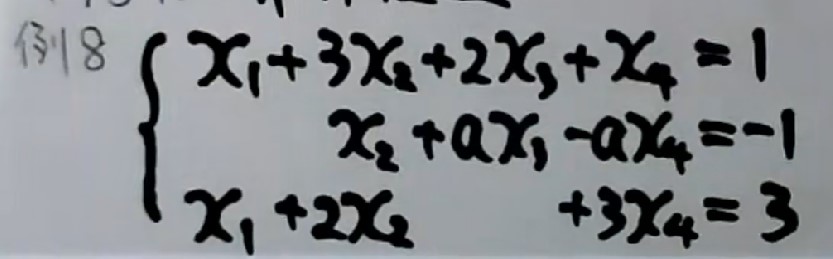 例8 x₁+3x₂+2x₃+x₄=1
x₂+ax₃-ax₄=-1
x₁+2x₂+3x₄=3